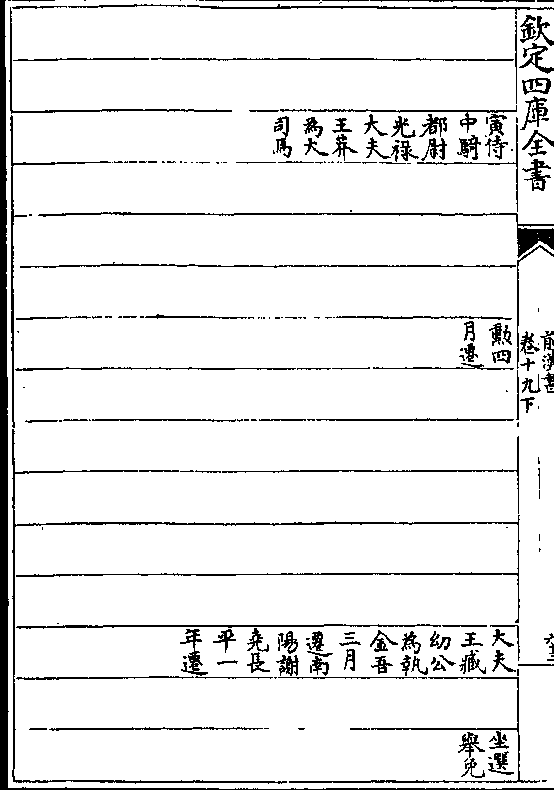 欽定四庫全書
前漢書
卷十九下
寅侍
中騎
都尉
光祿
大夫
王莽
為大
司馬
勲四
月遷
大夫
王臧
幼公
為執
金吾
三月
遷南
陽謝
堯長
平一
年遷
坐選
舉免